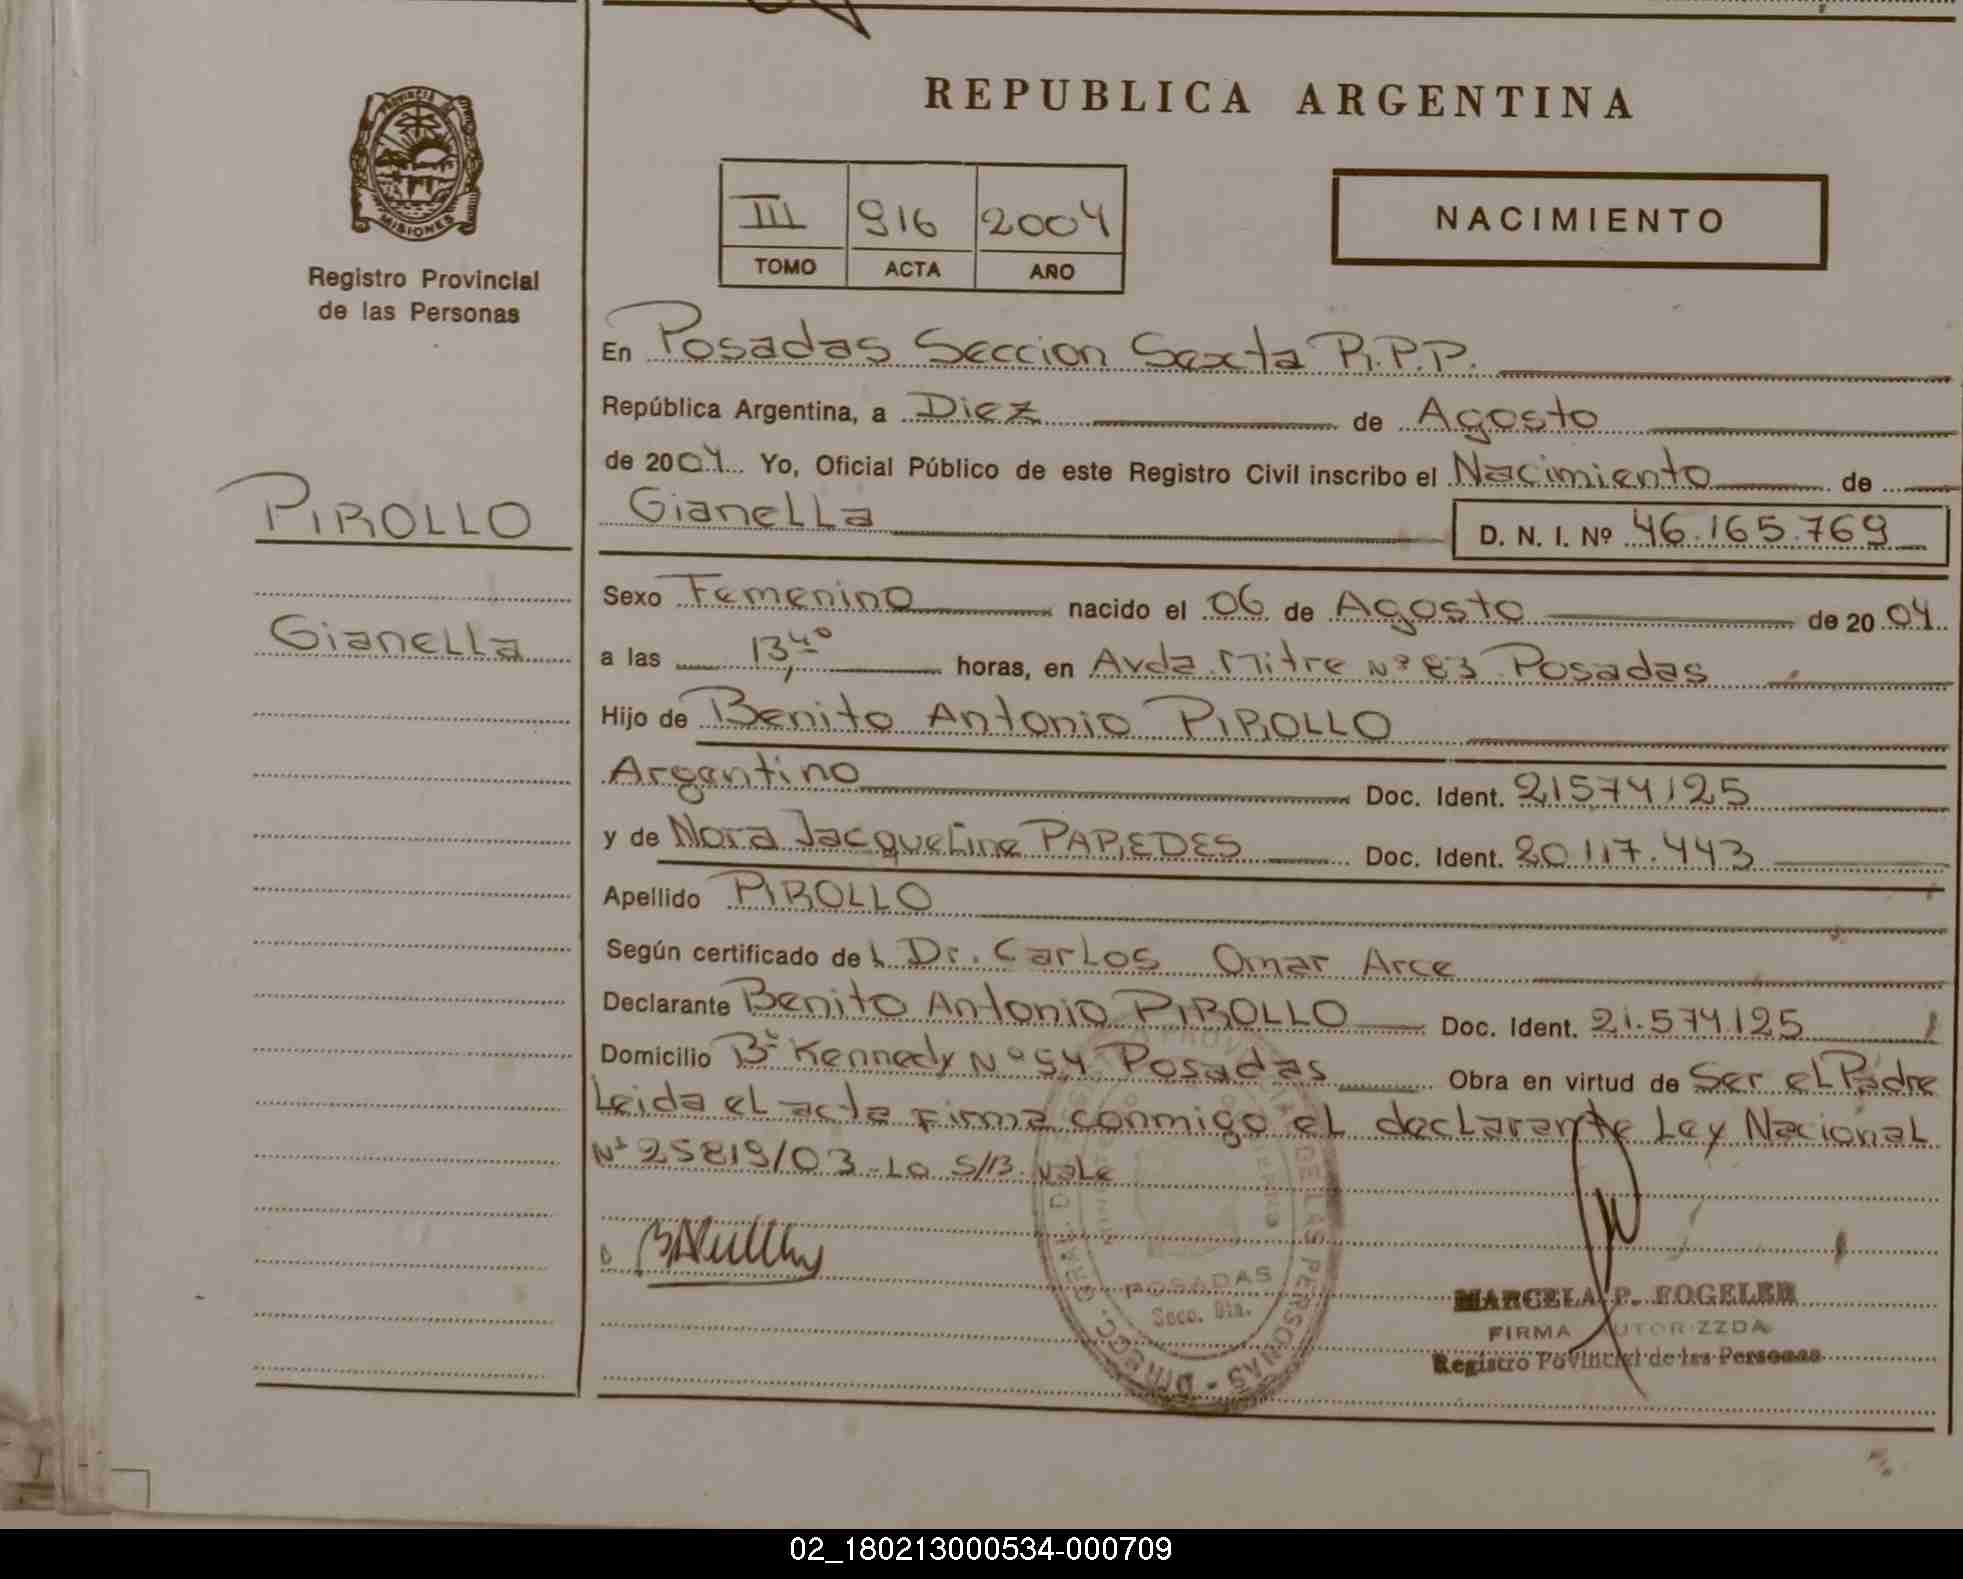 REPUBLICA ARGENTINA
PROVINCIA DE
MISIONES
Registro Provincial
de las Personas
III 916 2004
TOMO ACTA AÑO
NACIMIENTO
En Posadas Seccion Sexta R.P.P.
República Argentina, a Diez de Agosto
de 2004 Yo, Oficial Público de este Registro Civil inscribo el Nacimiento de
PIROLLO
Gianella
D. N. I. Nº 46.165.769
Sexo Femenino nacido el 06 de Agosto de 2004
Gianella
a las 13,40 horas, en Avda. Mitre Nº 83 Posadas
Hijo de Benito Antonio PIROLLO
Argentino Doc. Ident. 21574125
y de Nora Jacqueline PAREDES Doc. Ident. 20.117.443
Apellido PIROLLO
Según certificado del Dr. Carlos Omar Arce
Declarante Benito Antonio PIROLLO Doc. Ident. 21.574.125
Domicilio Bº Kennedy Nº 54 Posadas Obra en virtud de Ser el Padre
Leida el acta firma conmigo el declarante Ley Nacional
Nº 25819/03 - Lo S/B vale
DE LAS PERSONAS
POSADAS
Secc. 6ta.
MARCELA P. FOGELER
FIRMA AUTORIZZDA
Registro Povincial de las Personas
02_180213000534-000709